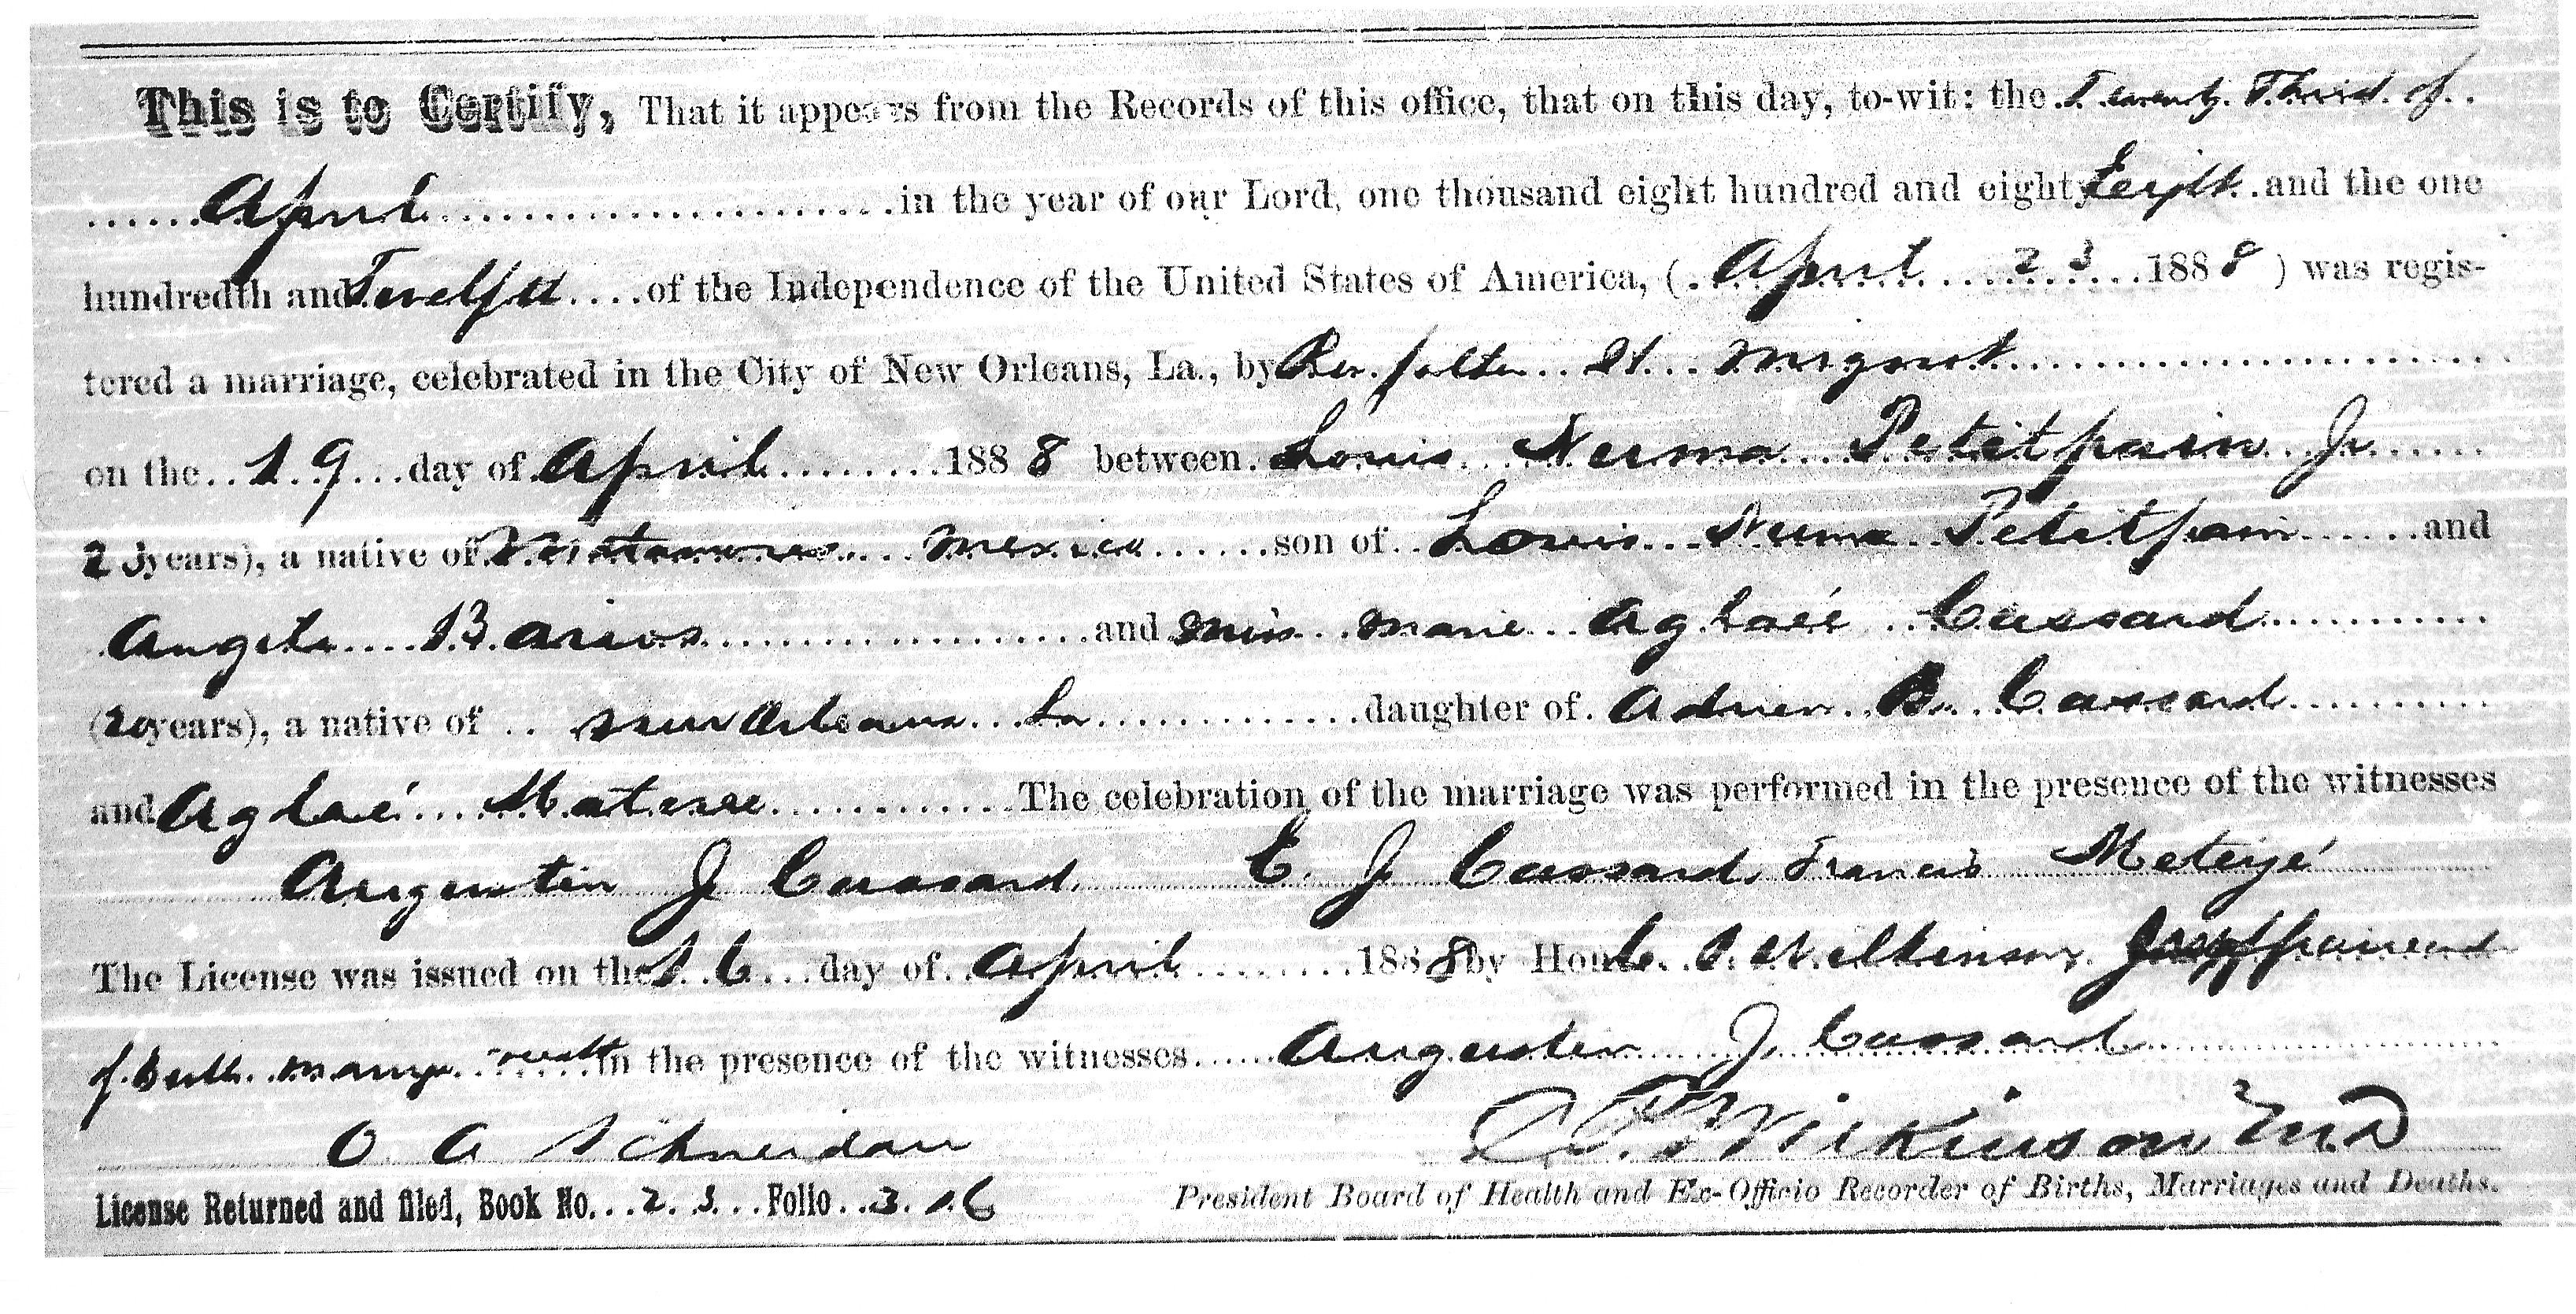 This is to Certify, That it appears from the Records of this office, that on this day, to-wit: the Twenty Third of
April in the year of our Lord, one thousand eight hundred and eighty Eight and the one
hundredth and Twelfth of the Independence of the United States of America, (April 23 1888) was regis-
tered a marriage, celebrated in the City of New Orleans, La., by Rev. father H. Mignot
on the 19 day of April 1888 between Louis Numa Petitpain Jr
23 years), a native of Matamoros Mexico son of Louis Numa Petitpain and
Angela Barios and Miss Marie Aglaée Cassard
(20 years), a native of New Orleans La daughter of Adrien B. Cassard
and Aglaé The celebration of the marriage was performed in the presence of the witnesses
Augustin J Cassard, E. J Cassard, Francis Meteyé
The License was issued on the 16 day of April 1888 by Hon C. P Wilkinson
of Birth Marriage in the presence of the witnesses Augustin J. Cassard
O A Schneidau C P Wilkinson MD
License Returned and filed, Book No. 23 Folio 316 President Board of Health and Ex-Officio Recorder of Births, Marriages and Deaths.